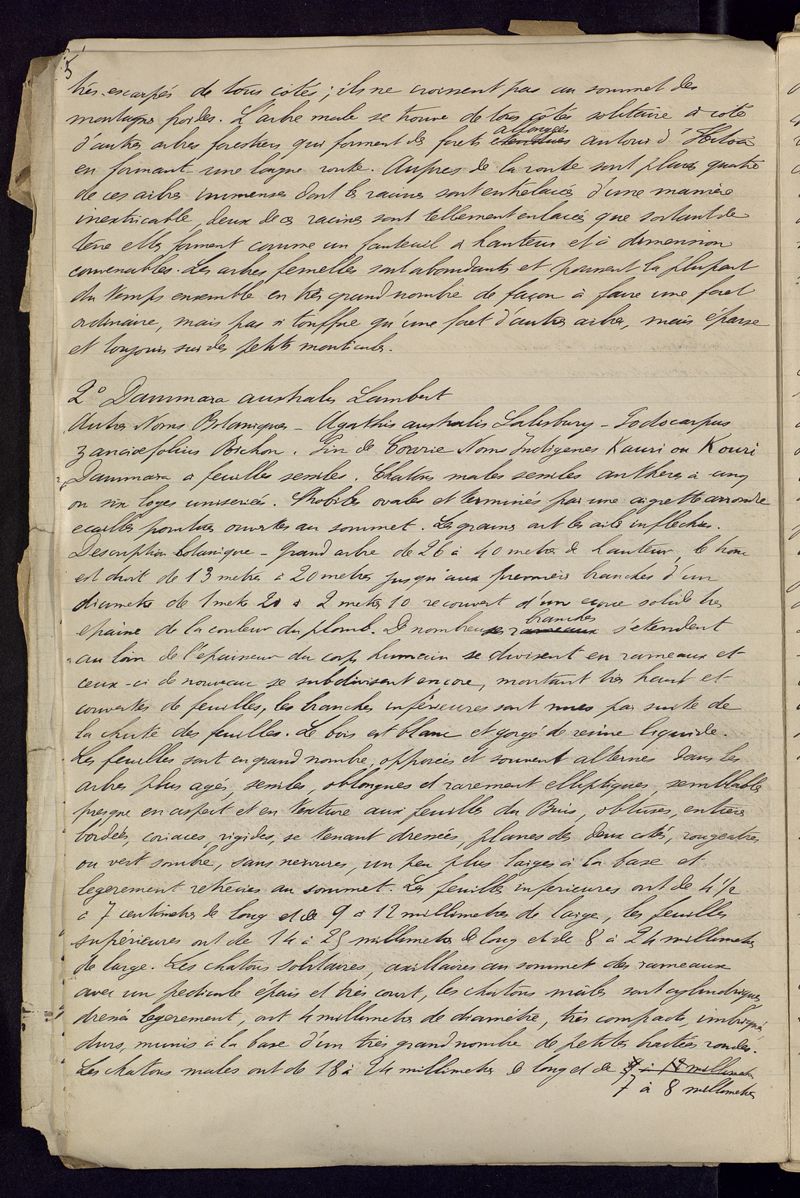 5
très escarpés de tous cotés ; ils ne croissent pas au sommet des
montagnes froides. L'arbre male se trouve de tous côtés solitaire à coté
d'autres arbres forestiers qui forment des forets allongées autour d'
en formant une longue route. Aupres de la route sont placés quatre
de ces arbres immenses dont les racines sont entrelacées d'une manière
inextricable, deux de ces racines sont tellement enlacées que sortant de
terre elles forment comme un fauteuil à hauteur et à dimension
convenables. Les arbres femelles sont abondants et poussent la plupart
du temps ensemble en très grand nombre de façon à faire une foret
ordinaire, mais pas si touffue qu'une foret d'autres arbres, mais éparse
et toujours sur des petits monticules.
2° Dammara australis Lambert
Autres Noms Botaniques - Agathis australis Salisbury - Podocarpus
zamiaefolius Richon. Pin de Cowrie Noms Indigenes Kauri ou Kouri
Dammara à feuilles sessiles. Chatons males sessiles anthères à cinq
ou six loges uniseriées. Strobiles ovales et terminés par une aigrette arrondie
ecailles pointues ouvertes au sommet. Les graines ont les ailes inflechies.
Description botanique - Grand arbre de 26 à 40 metres de hauteur, le tronc
est droit de 13 metres à 20 metres jusqu'aux premières branches d'un
diametre de 1 metre 20 à 2 metres 10 recouvert d'un ecorce solide tres
epaisse de la couleur du plomb. De nombreuses branches s'etendent
au loin de l'epaisseur du corps humain se divisent en rameaux et
ceux-ci de nouveau se subdivisent encore, montant très haut et
couvertes de feuilles, les branches inférieures sont nues par suite de
la chute des feuilles. Le bois est blanc et gorgé de resine liquide.
Les feuilles sont en grand nombre, opposées et souvent alternes dans les
arbres plus agés, sessiles, oblongues et rarement elliptiques, semblables
presque en aspect et en texture aux feuilles du Buis, obtuses, entières
bordées, coriaces, rigides, se tenant dressées, planes des deux cotés, rougeatres
ou vert sombre, sans nervures, un peu plus larges à la base et
legerement retrecies au sommet. Les feuilles inferieures ont de 4 1/2
à 7 centimetres de long et de 9 à 12 millimetres de large, les feuilles
supérieures ont de 14 à 25 millimetres de long et de 8 à 24 millimetres
de large. Les chatons solitaires, axillaires au sommet des rameaux
avec un pedicule épais et très court, les chatons mâles sont cylindriques,
dressés legerement, ont 4 millimetres de diametre, très compacts, imbriqués
durs, munis à la base d'un très grand nombre de petites bractées rondes.
Les chatons males ont de 18 à 24 millimetres de long et de 8 à 18 millimetres
7 à 8 millimetres